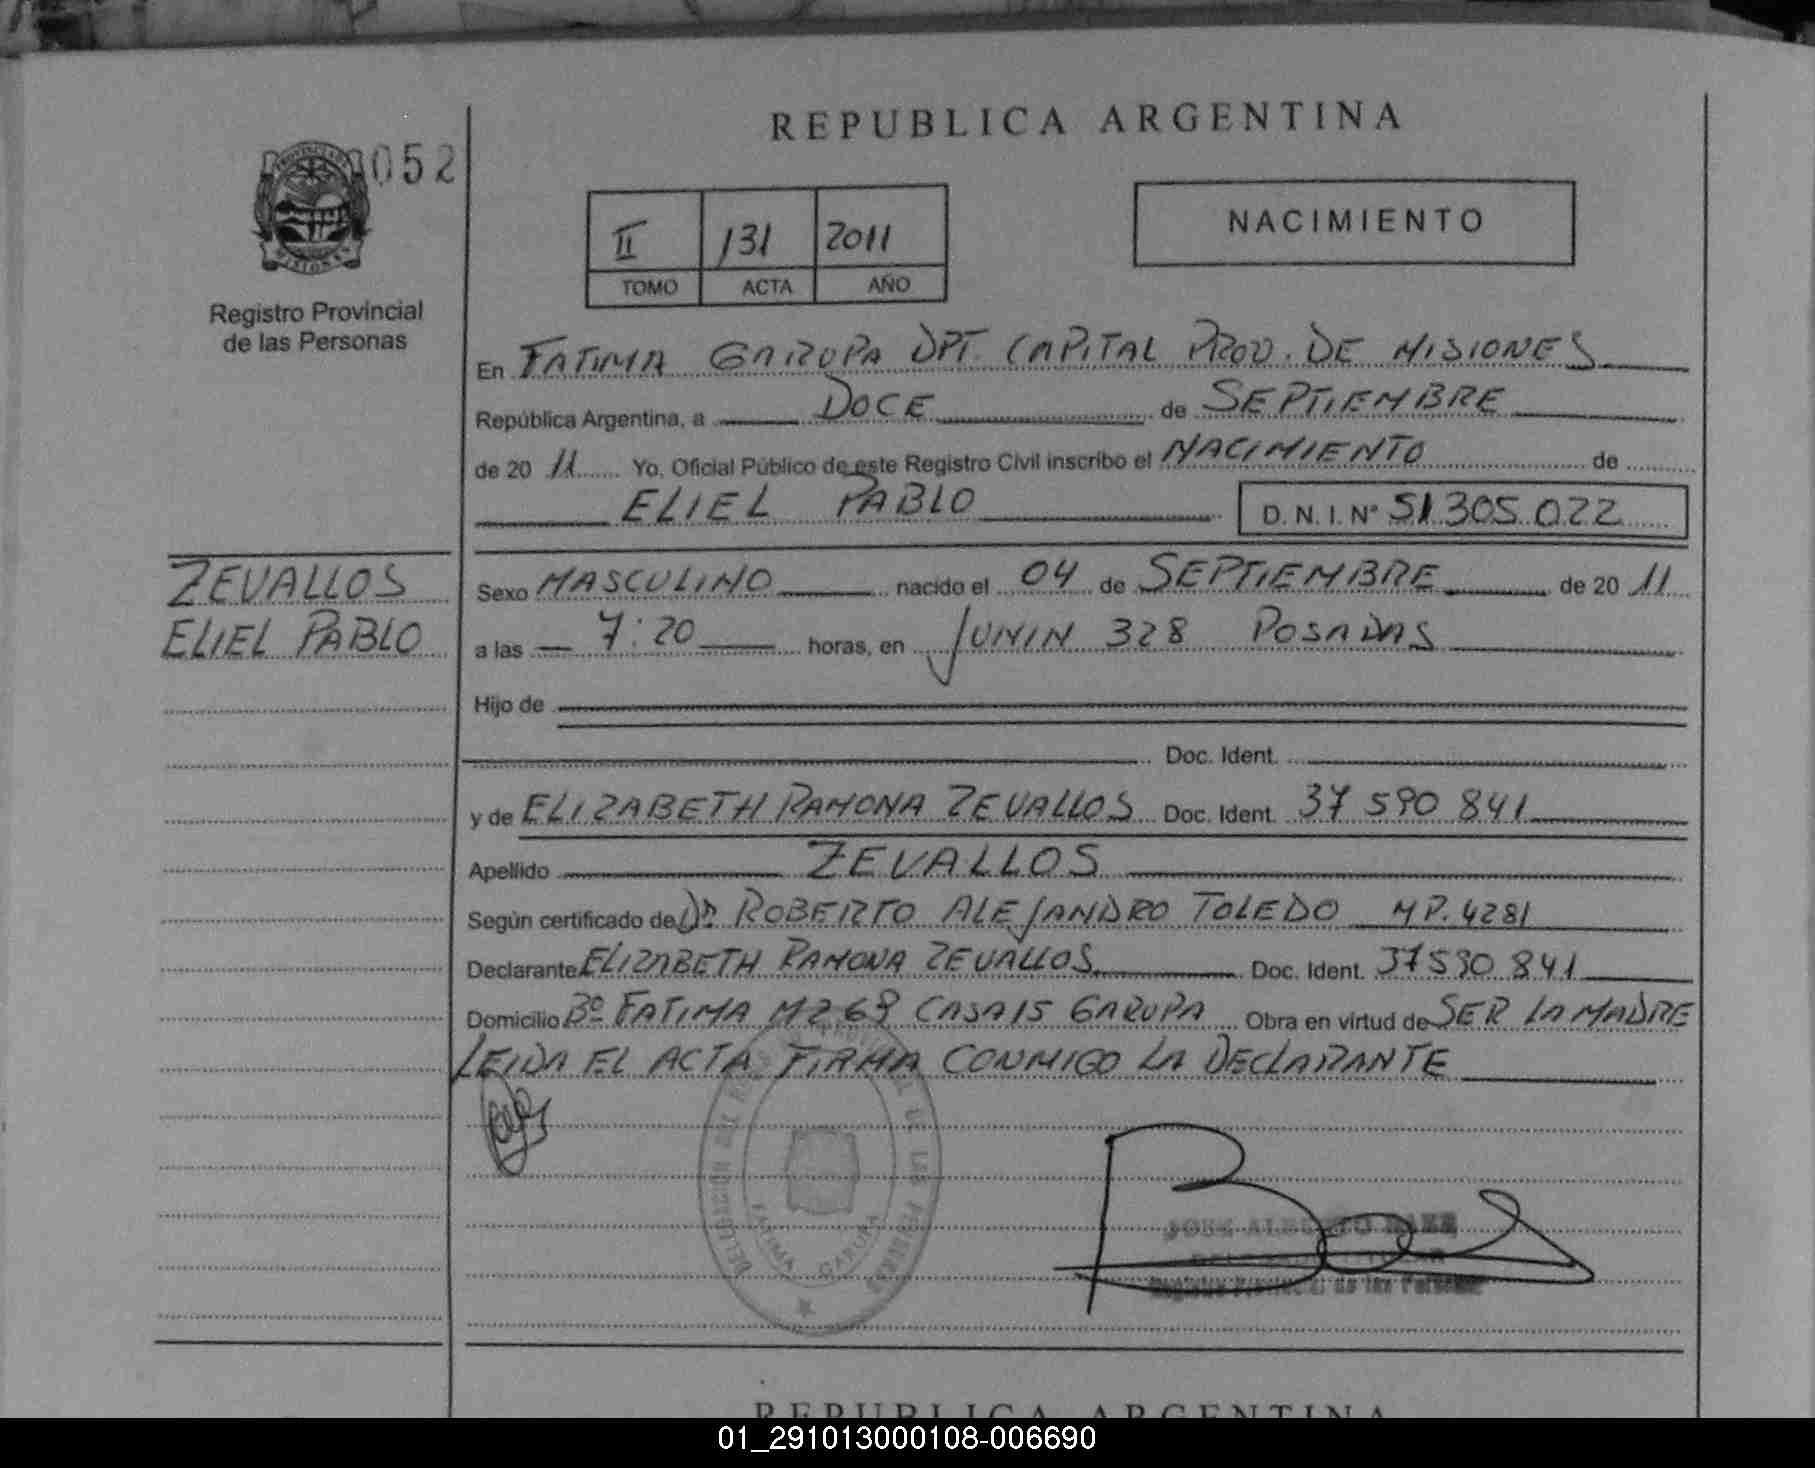 REPUBLICA ARGENTINA
052
PROVINCIA DE
MISIONES
Registro Provincial
de las Personas
II 131 2011
TOMO ACTA AÑO
NACIMIENTO
En FATIMA GARUPA DPT. CAPITAL PROV. DE MISIONES
República Argentina, a DOCE de SEPTIEMBRE
de 20 11 Yo, Oficial Público de este Registro Civil inscribo el NACIMIENTO de
ELIEL PABLO D.N.I. Nº 51.305.022
ZEVALLOS
ELIEL PABLO
Sexo MASCULINO nacido el 04 de SEPTIEMBRE de 20 11
a las 7:20 horas, en JUNIN 328 POSADAS
Hijo de
Doc. Ident.
y de ELIZABETH RAMONA ZEVALLOS Doc. Ident. 37 590 841
Apellido ZEVALLOS
Según certificado de Dr ROBERTO ALEJANDRO TOLEDO MP. 4281
Declarante ELIZABETH RAMONA ZEVALLOS Doc. Ident. 37590 841
Domicilio Bº FATIMA MZ 69 CASA 15 GARUPA Obra en virtud de SER LA MADRE
LEIDA EL ACTA FIRMA CONMIGO LA DECLARANTE
DELEGACION DEL REG. PROVINCIAL DE LAS PERSONAS
FATIMA GARUPA
JOSE ALBERTO BAEZ
Registro Provincial de las Personas
REPUBLICA ARGENTINA
01_291013000108-006690